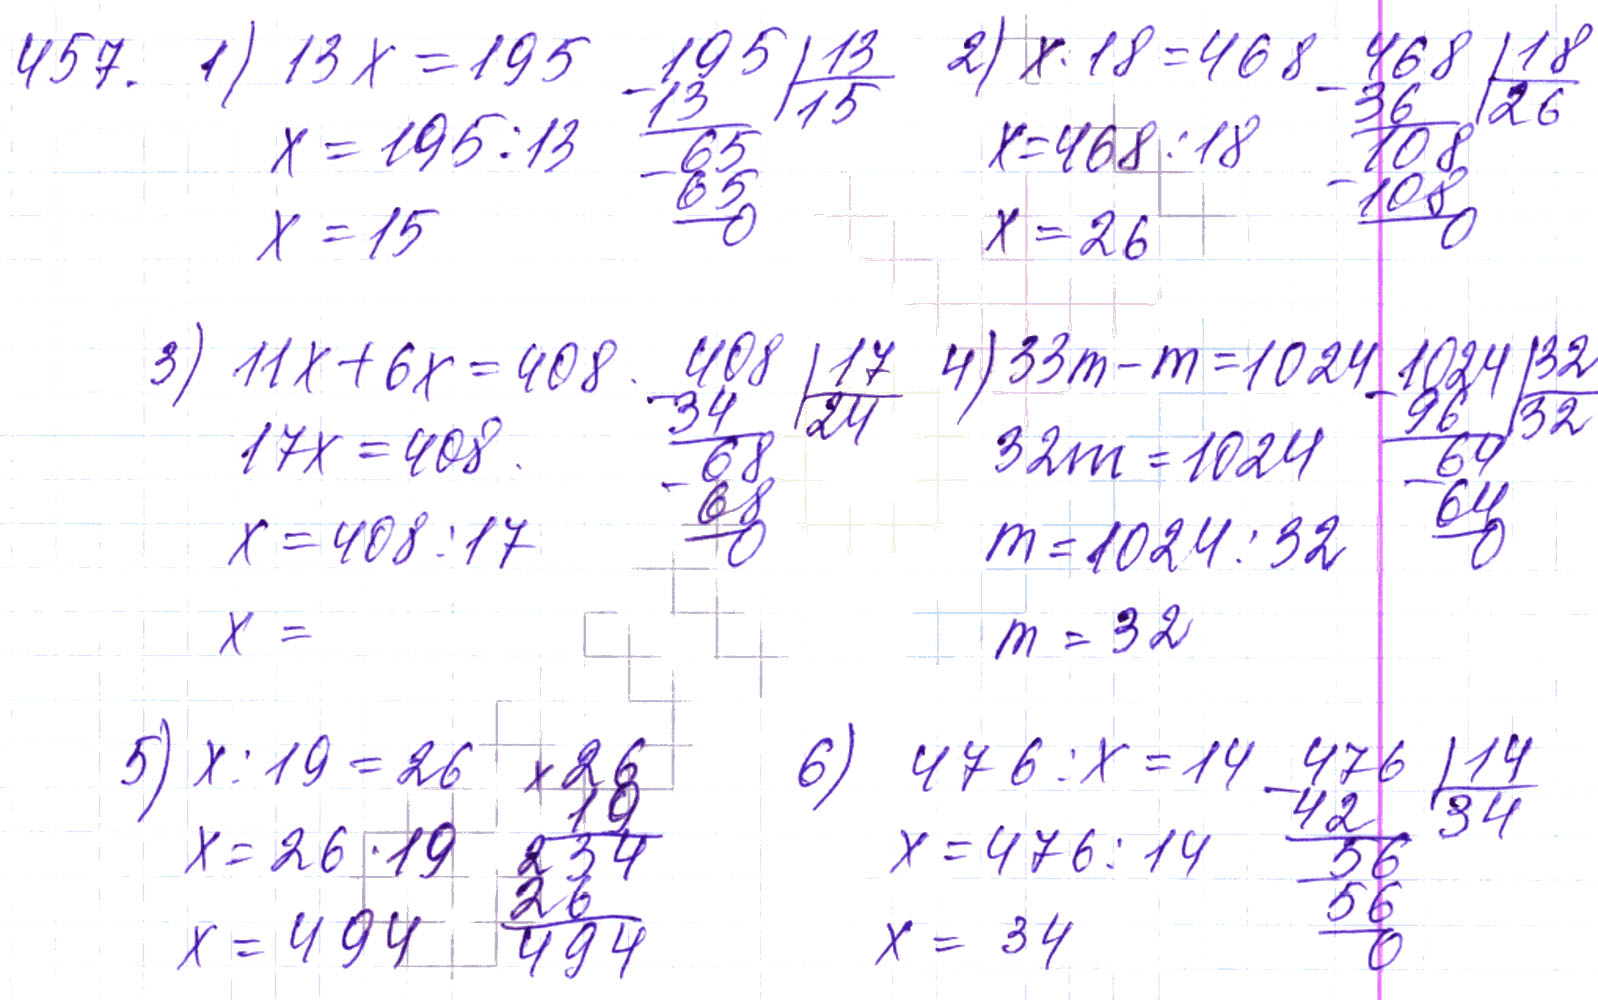 457. 1) 13x = 195
x = 195 : 13
x = 15
195 | 13
- 13
15
65
- 65
0
2) x · 18 = 468
x = 468 : 18
x = 26
468 | 18
- 36
26
108
- 108
0
3) 11x + 6x = 408.
17x = 408.
x = 408 : 17
x =
408 | 17
- 34
24
68
- 68
0
4) 33m - m = 1024
32m = 1024
m = 1024 : 32
m = 32
1024 | 32
- 96
32
64
- 64
0
5) x : 19 = 26
x = 26 · 19
x = 494
x 26
19
234
26
494
6) 476 : x = 14
x = 476 : 14
x = 34
476 | 14
- 42
34
56
- 56
0